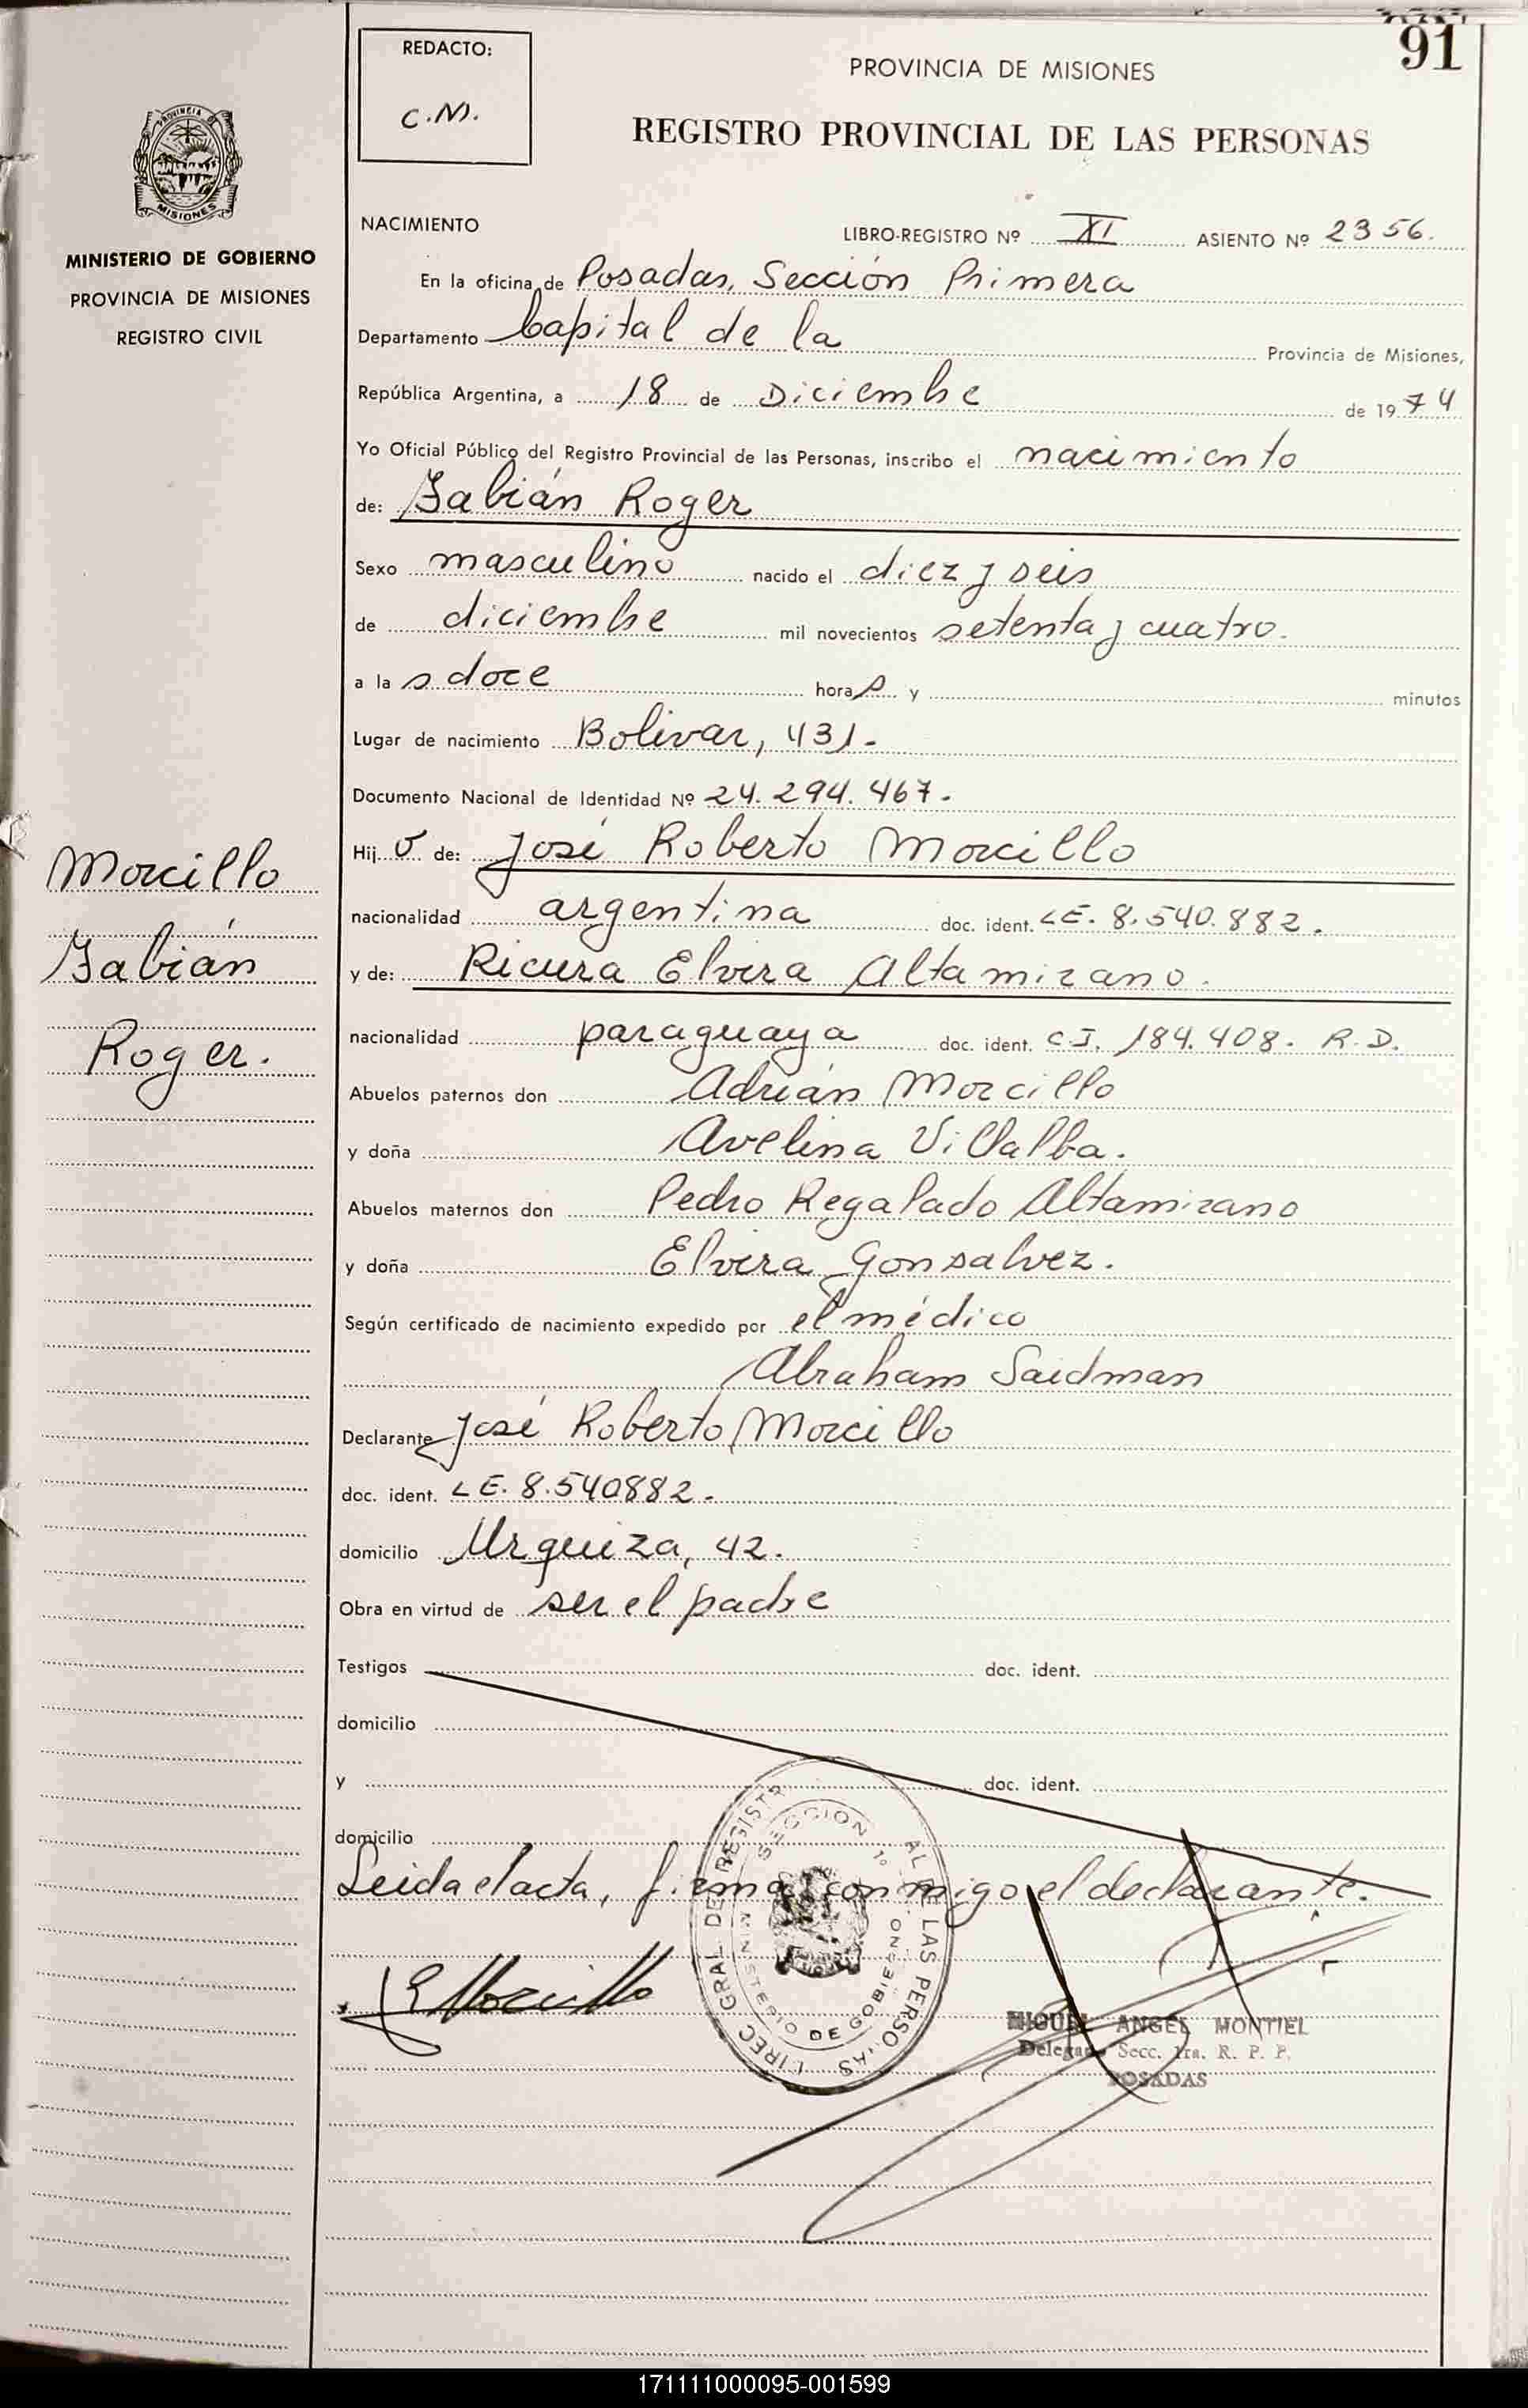 91
REDACTO:
C.M.
PROVINCIA DE MISIONES
REGISTRO PROVINCIAL DE LAS PERSONAS
PROVINCIA
MISIONES
MINISTERIO DE GOBIERNO
PROVINCIA DE MISIONES
REGISTRO CIVIL
NACIMIENTO
LIBRO-REGISTRO Nº XI ASIENTO Nº 2356.
En la oficina de Posadas, Sección Primera
Departamento Capital de la Provincia de Misiones,
República Argentina, a 18 de Diciembre de 1974
Yo Oficial Público del Registro Provincial de las Personas, inscribo el nacimiento
de: Fabián Roger
Sexo masculino nacido el diez y seis
de diciembre mil novecientos setenta y cuatro.
a las doce horas y minutos
Lugar de nacimiento Bolivar, 431.
Documento Nacional de Identidad Nº 24.294.467.
Hijo de: José Roberto Morcillo
nacionalidad argentina doc. ident. LE. 8.540.882.
y de: Ricura Elvira Altamirano.
nacionalidad paraguaya doc. ident. C.I. 184.408. R.D.
Abuelos paternos don Adrián Morcillo
y doña Avelina Villalba.
Abuelos maternos don Pedro Regalado Altamirano
y doña Elvira Gonsalvez.
Según certificado de nacimiento expedido por el médico
Abraham Saidman
Declarante José Roberto Morcillo
doc. ident. LE. 8.540882.
domicilio Urquiza, 42.
Obra en virtud de ser el padre
Testigos doc. ident.
domicilio
y doc. ident.
domicilio
Leida el acta, firma conmigo el declarante.
Morcillo
Fabián
Roger.
DIREC GRAL DE REGISTR AL DE LAS PERSONAS
SECCION 1º
MINISTERIO DE GOBIERNO
MIGUEL ANGEL MONTIEL
Delegado Secc. 1ra. R. P. P.
POSADAS
171111000095-001599